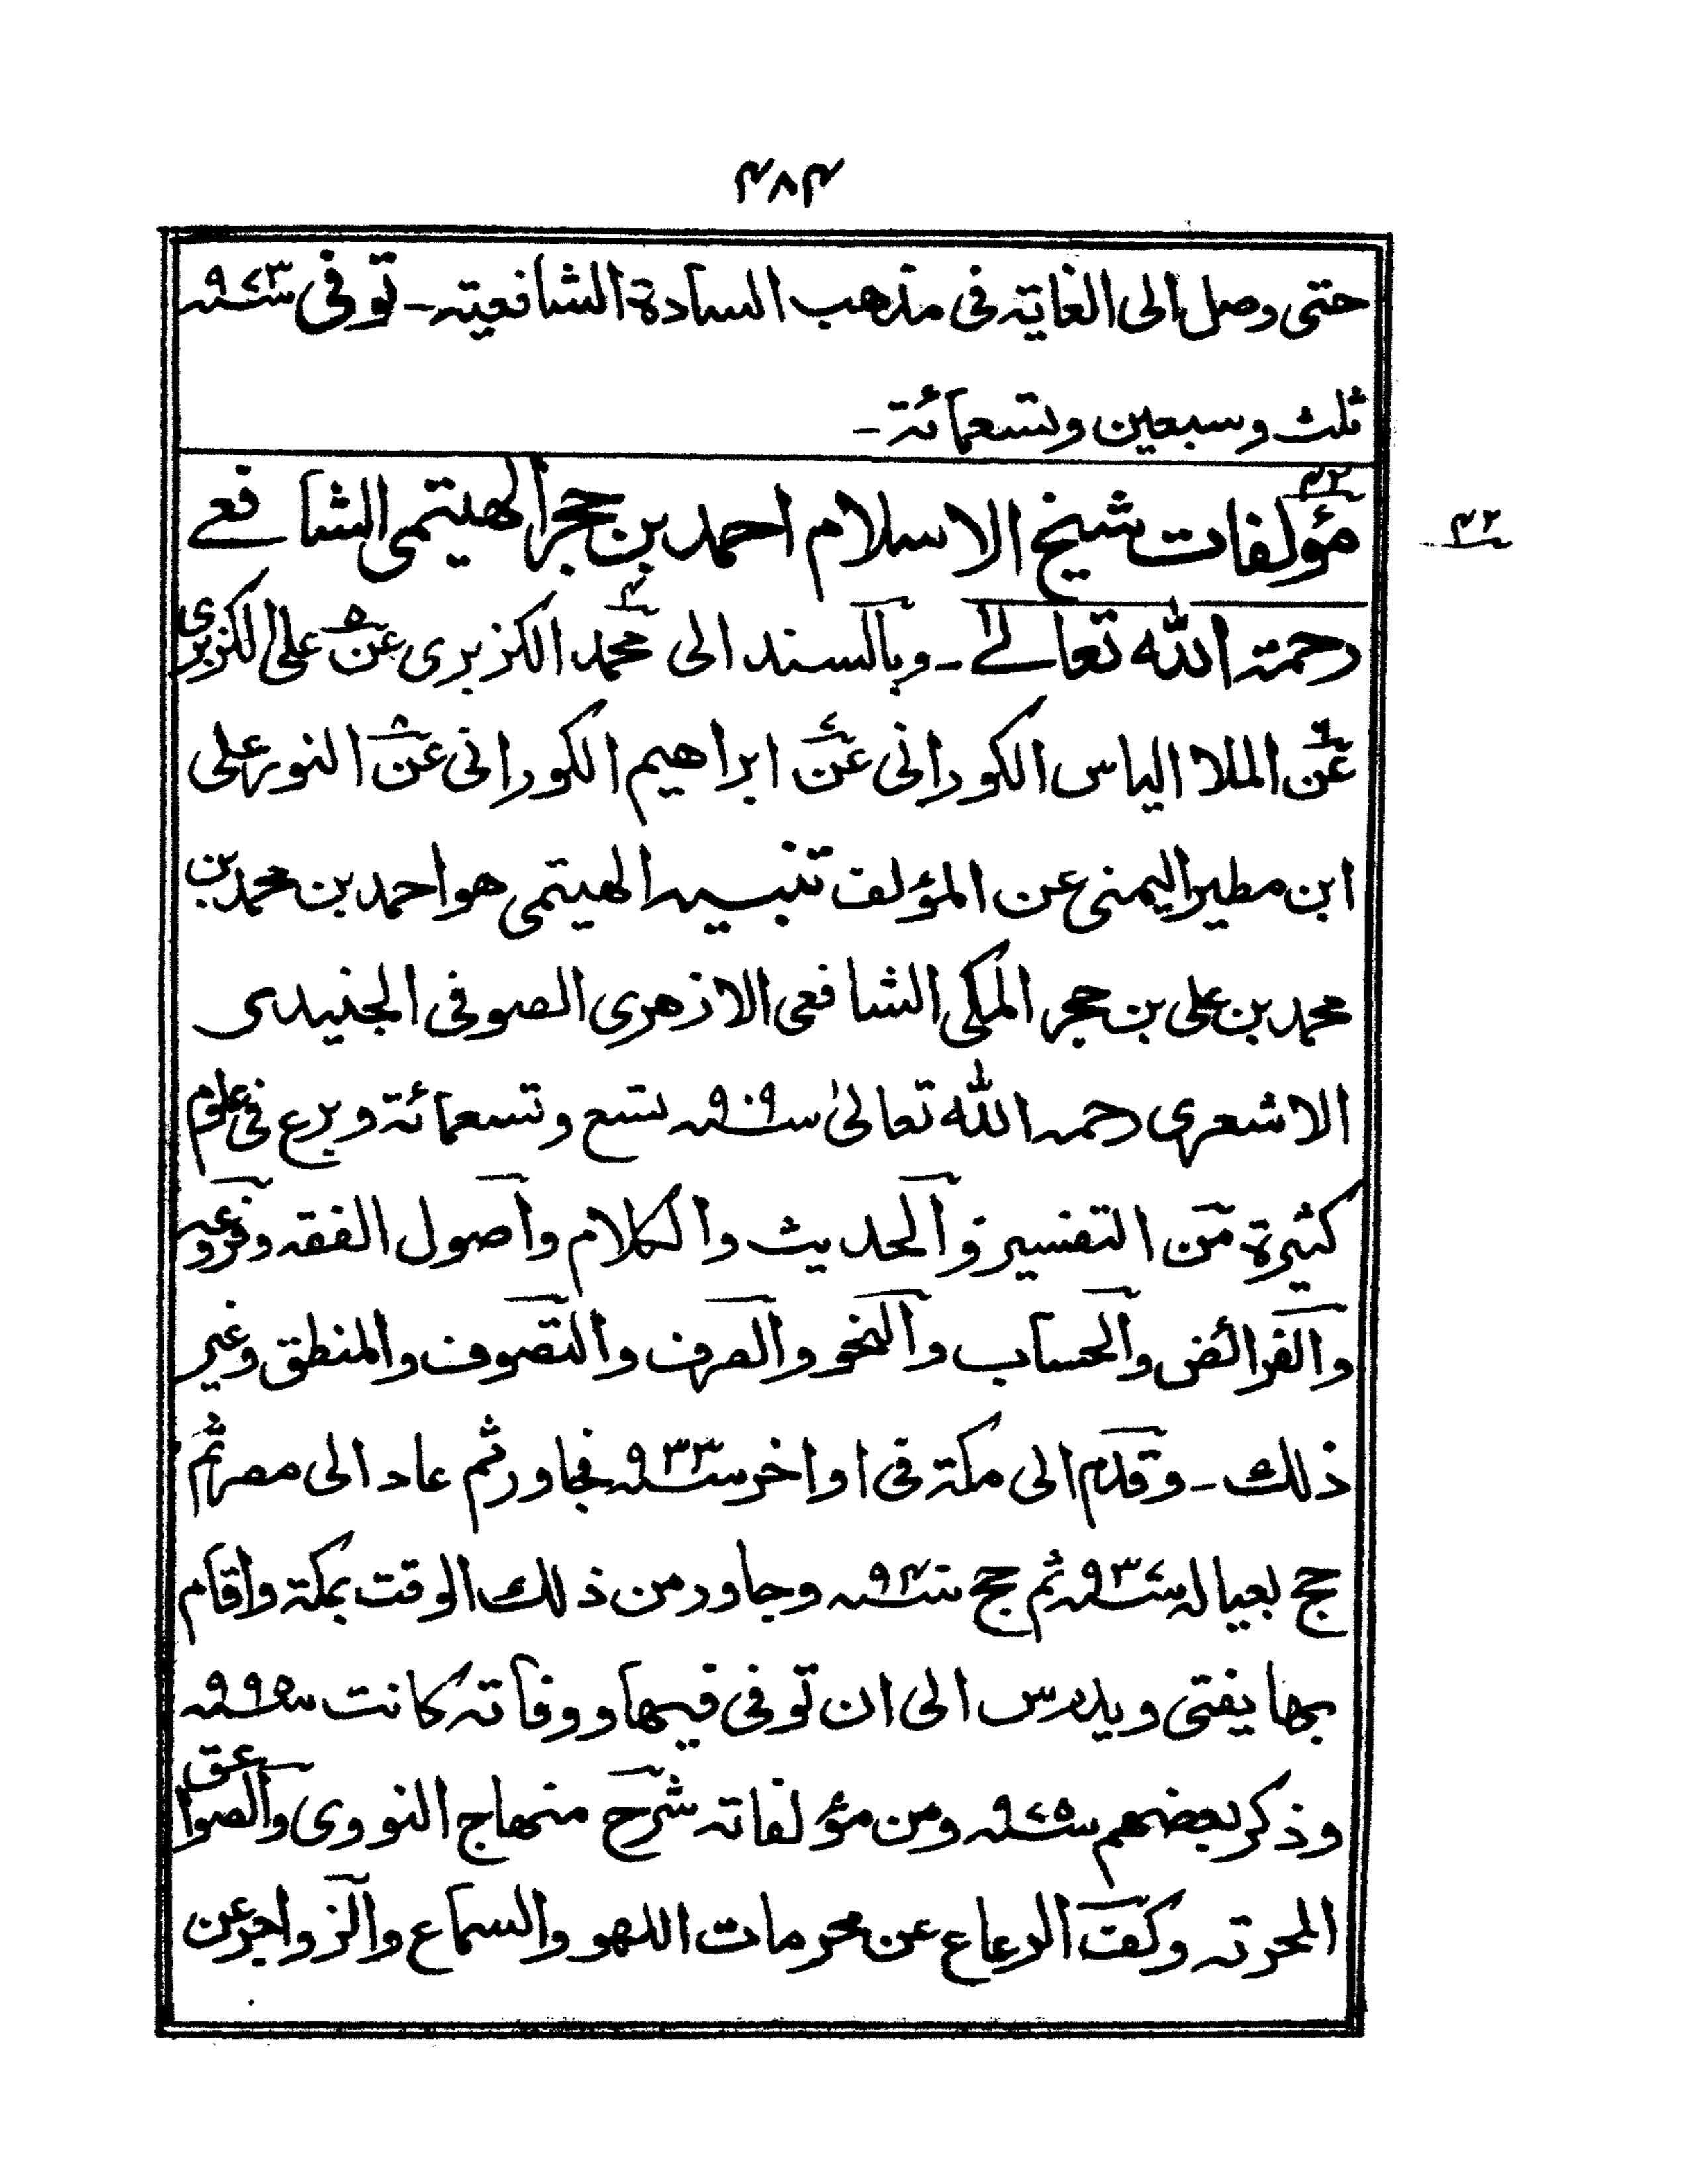 ۴۸۴
حتى وصل الى الغاية فى مذهب السادة الشافعية - توفى سنة ۹۷۳
ثلث وسبعين وتسعمائة -
۴۲
مؤلفات شيخ الاسلام احمد بن حجر الهيتمى الشافعے
۴۲
رحمة الله تعالے - وبالسند الى محمد الكزبرى عن علی الكزبرى
عن الملا الياس الكورانى عن ابراهيم الكورانى عن النور على
ابن مطير اليمنى عن المؤلف تنبيه الهيتمى هو احمد بن محمد بن
محمد بن على بن حجر المكى الشافعى الازهرى الصوفى الجنيدى
الاشعرى رحمه الله تعالىٰ سنة ۹۰۹ تسع وتسعمائة وبرع فى علوم
كثيرة من التفسير والحديث والكلام واصول الفقه وفروعه
والفرائض والحساب والنحو والصرف والتصوف والمنطق وغير
ذلك - وقدم الى مكة فى اواخر سنة ۹۳۳ فجاور ثم عاد الى مصر ثم
حج بعياله سنة ۹۳۷ ثم حج سنة ۹۴ وجاور من ذلك الوقت بمكة واقام
بها يفتى ويدرس الى ان توفى فيها ووفاته كانت سنة ۹۹۵
وذكر بعضهم سنة ۹۷۵ ومن مؤلفاته شرح منهاج النووى والصواعق
المحرقه وكف الرعاع عن محرمات اللهو والسماع والزواجر عن